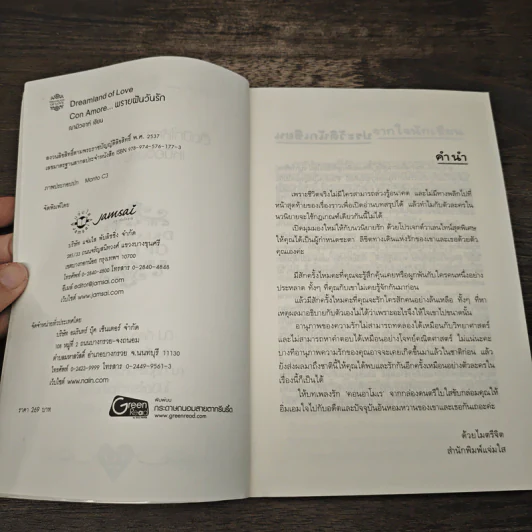 Dreamland of Love
Con Amore... พรายฝันวันรัก
เขียน
สงวนลิขสิทธิ์ตามพระราชบัญญัติลิขสิทธิ์ พ.ศ. 2537
เลขมาตรฐานสากลประจำหนังสือ ISBN 978-974-576-177-3
ภาพประกอบปก Monto C3
จัดพิมพ์โดย
jamsai
บริษัท แจ่มใส พับลิชชิ่ง จำกัด
285/33 ถนนจรัญสนิทวงศ์ แขวงบางขุนศรี
เขตบางกอกน้อย กรุงเทพฯ 10700
โทรศัพท์ 0-2840-4800 โทรสาร 0-2840-4848
อีเมล์ editor@jamsai.com
เว็บไซต์ www.jamsai.com
จัดจำหน่ายทั่วประเทศโดย
บริษัท อมรินทร์ บุ๊ค เซ็นเตอร์ จำกัด
108 หมู่ที่ 2 ถนนบางกรวย-จงถนอม
ตำบลมหาสวัสดิ์ อำเภอบางกรวย จ.นนทบุรี 11130
โทรศัพท์ 0-2423-9999 โทรสาร 0-2449-9561-3
เว็บไซต์ www.naiin.com
ราคา 269 บาท
Green Read
พิมพ์บน
กระดาษถนอมสายตากรีนรี้ด
www.greenread.com
คำนำ
เพราะชีวิตจริงไม่มีใครสามารถล่วงรู้อนาคต และไม่มีทางพลิกไปที่
หน้าสุดท้ายของเรื่องราวเพื่อเปิดอ่านบทสรุปได้ แล้วทำไมกับตัวละครใน
นวนิยายจะใช้กฎเกณฑ์เดียวกันนี้ไม่ได้
เปิดมุมมองใหม่ให้กับนวนิยายรัก ด้วยโปรเจกต์วาเลนไทน์สุดพิเศษ
ให้คุณได้เป็นผู้กำหนดชะตา ลิขิตทางเดินแห่งรักของเขาและเธอด้วยตัว
คุณเอง
มีสักครั้งไหมคะที่คุณจะรู้สึกคุ้นเคยหรือผูกพันกับใครคนหนึ่งอย่าง
ประหลาด ทั้งๆ ที่คุณกับเขาไม่เคยรู้จักกันมาก่อน
แล้วมีสักครั้งไหมคะที่คุณจะรักใครสักคนอย่างล้นเหลือ ทั้งๆ ที่หา
เหตุผลมาอธิบายกับตัวเองไม่ได้ว่าเพราะอะไรจึงให้ใจเขาไปขนาดนั้น
อานุภาพของความรักไม่สามารถทดลองได้เหมือนกับวิทยาศาสตร์
และไม่สามารถหาคำตอบได้เหมือนอย่างโจทย์คณิตศาสตร์ ไม่แน่นะคะ
บางทีอานุภาพความรักของคุณอาจจะเคยเกิดขึ้นมาแล้วในชาติก่อน แล้ว
ยังส่งผลมาถึงชาตินี้ให้คุณได้พบและรักกันอีกครั้งเหมือนอย่างตัวละครใน
เรื่องนี้ก็เป็นได้
ให้บทเพลงรัก 'คอนอาโมเร' จากกล่องดนตรีใบใสขับกล่อมคุณให้
อิ่มเอมใจไปกับอดีตและปัจจุบันอันหอมหวานของเขาและเธอกันเถอะค่ะ
ด้วยไมตรีจิต
สำนักพิมพ์แจ่มใส